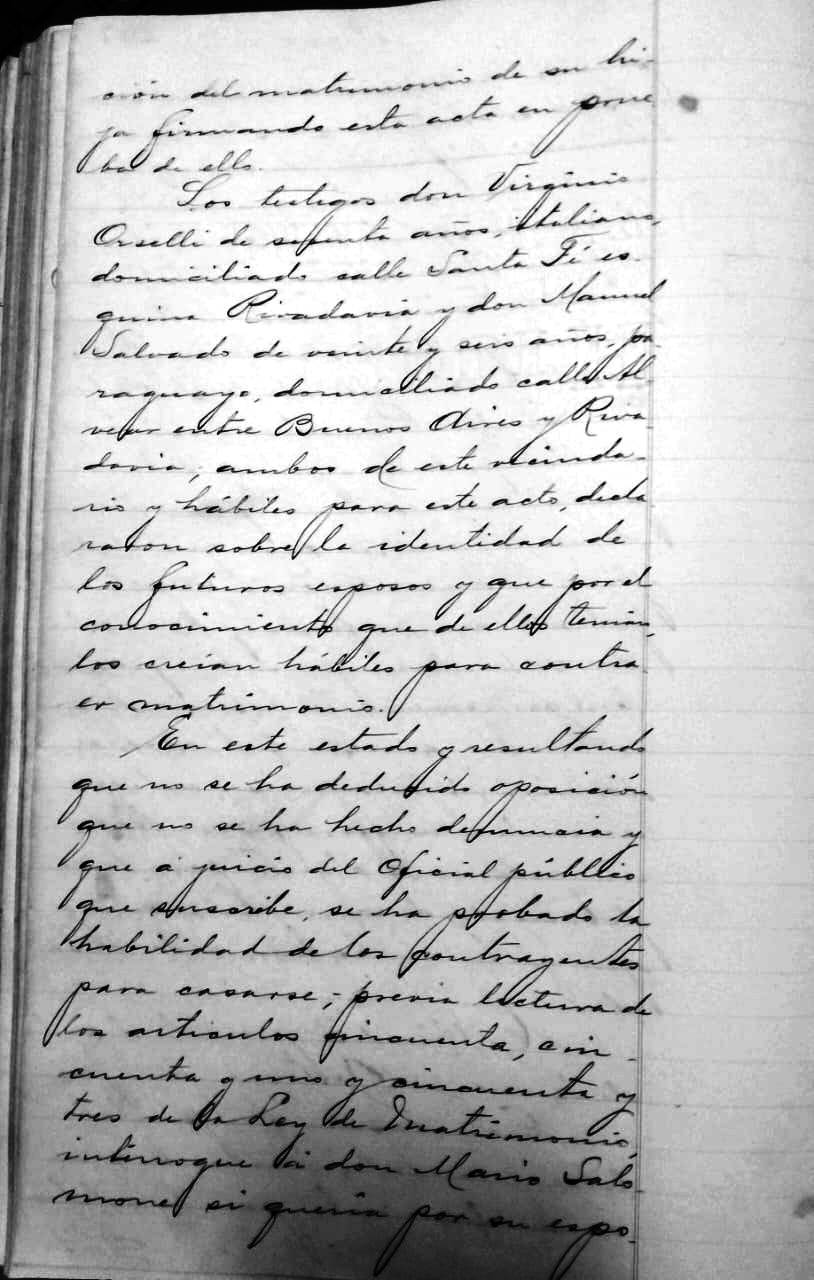 ción del matrimonio de su hi-
ja firmando esta acta en prue
ba de ello.
Los testigos don Virginio
Orselli de sesenta años, italiano,
domiciliado calle Santa Fé es-
quina Rivadavia y don Manuel
Salvado de veinte y seis años, pa-
raguayo, domiciliado calle Al-
vear entre Buenos Aires y Riva-
davia; ambos de este vecinda-
rio y hábiles para este acto, decla
raron sobre la identidad de
los futuros esposos y que por el
conocimiento que de ellos tenian,
los creian hábiles para contra-
er matrimonio.
En este estado y resultando
que no se ha deducido oposición
que no se ha hecho denuncia y
que á juicio del Oficial público
que suscribe, se ha probado la
habilidad de los contrayentes
para casarse; previa lectura de
los articulos cincuenta, cin-
cuenta y uno y cincuenta y
tres de la Ley de Matrimonio,
interrogue á don Mario Salo-
mone si queria por su espo-